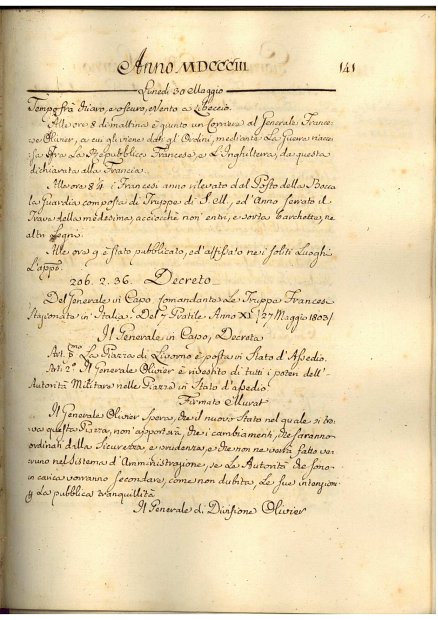 Anno MDCCCIII 141
Lunedi 30 Maggio
Tempo frà chiaro, e oscuro, e Vento a Libeccio.
Alle ore 8 di mattina è giunto un Corriere al Generale France=
se Olivier, a cui gli viene dati gli Ordini, mediante La Guerra riacce=
sa frà La Repubblica Francese, e L'Inghilterra, da questa
dichiarata alla Francia.
Alle ore 8¼ i Francesi anno rilevato dal Posto della Bocca
la Guardia composta di Truppe di S. M., ed' Anno serato il
Trave della medesima, acciocchè non' entri, e sorta barchette, ne
altri Legni.
Alle ore 9 è stato pubblicato, ed' affissato nei soliti Luoghi
L'appo:
206. 2. 36. Decreto
Del Generale in Capo Comandante Le Truppe Francesi
stazionate in' Italia. Del 7 Pratile Anno XI (27 Maggio 1803)
Il Generale in Capo, Decreta
Art. Pmo. La Piazza di Livorno è posta in Stato d'Assedio.
Art: 2º Il Generale Olivier è rivestito di tutti i poteri dell'
Autorità Militare nelle Piazze in Stato d'assedio.
Firmato Murat
Il Generale Olivier Spera, che il nuovo Stato nel quale si tro=
va questa Piazza, non' apporterà, che i cambiamenti, che saranno
ordinati dalla Sicurezza, e prudenza, e che non ne verrà fatto ve=
runo nel sistema d'Amministrazione, se Le Autorità che sono
in carica vorranno Secondare, come non dubita, Le sue intenzioni
p La pubblica tranquillità
Il Generale di Divisione Olivier